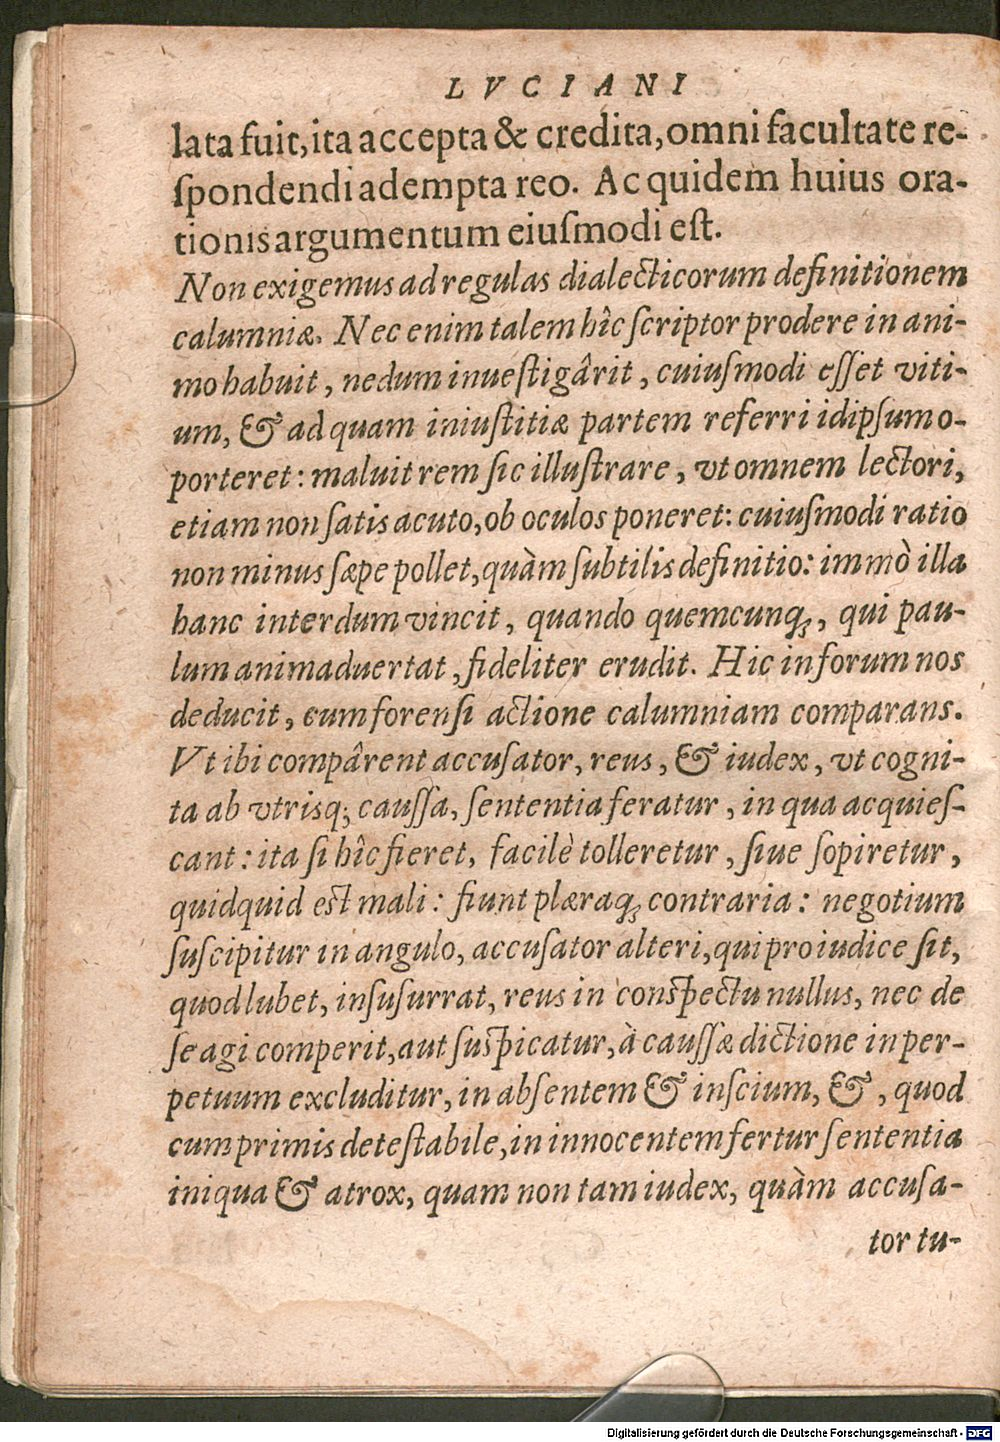 LVCIANI
lata fuit, ita accepta & credita, omni facultate re-
ſpondendi adempta reo. Ac quidem huius ora-
tionis argumentum eiuſmodi eſt.
Non exigemus ad regulas dialecticorum definitionem
calumniæ. Nec enim talem hîc ſcriptor prodere in ani-
mo habuit, nedum inueſtigârit, cuiuſmodi eſſet viti-
um, & ad quam iniuſtitiæ partem referri idipſum o-
porteret: maluit rem ſic illuſtrare, vt omnem lectori,
etiam non ſatis acuto, ob oculos poneret: cuiuſmodi ratio
non minus ſæpe pollet, quàm ſubtilis definitio: immò illa
hanc interdum vincit, quando quemcunq;, qui pau-
lum animaduertat, fideliter erudit. Hic in forum nos
deducit, cum forenſi actione calumniam comparans.
Vt ibi compârent accuſator, reus, & iudex, vt cogni-
ta ab vtrisq; cauſſa, ſententia feratur, in qua acquieſ-
cant: ita ſi hîc fieret, facilè tolleretur, ſiue ſopiretur,
quidquid eſt mali: fiunt plæraq; contraria: negotium
ſuſcipitur in angulo, accuſator alteri, qui pro iudice ſit,
quod lubet, inſuſurrat, reus in conſpectu nullus, nec de
ſe agi comperit, aut ſuſpicatur, à cauſſæ dictione in per-
petuum excluditur, in abſentem & inſcium, &, quod
cum primis deteſtabile, in innocentem fertur ſententia
iniqua & atrox, quam non tam iudex, quàm accuſa-
tor tu-
Digitalisierung gefördert durch die Deutsche Forschungsgemeinschaft - DFG